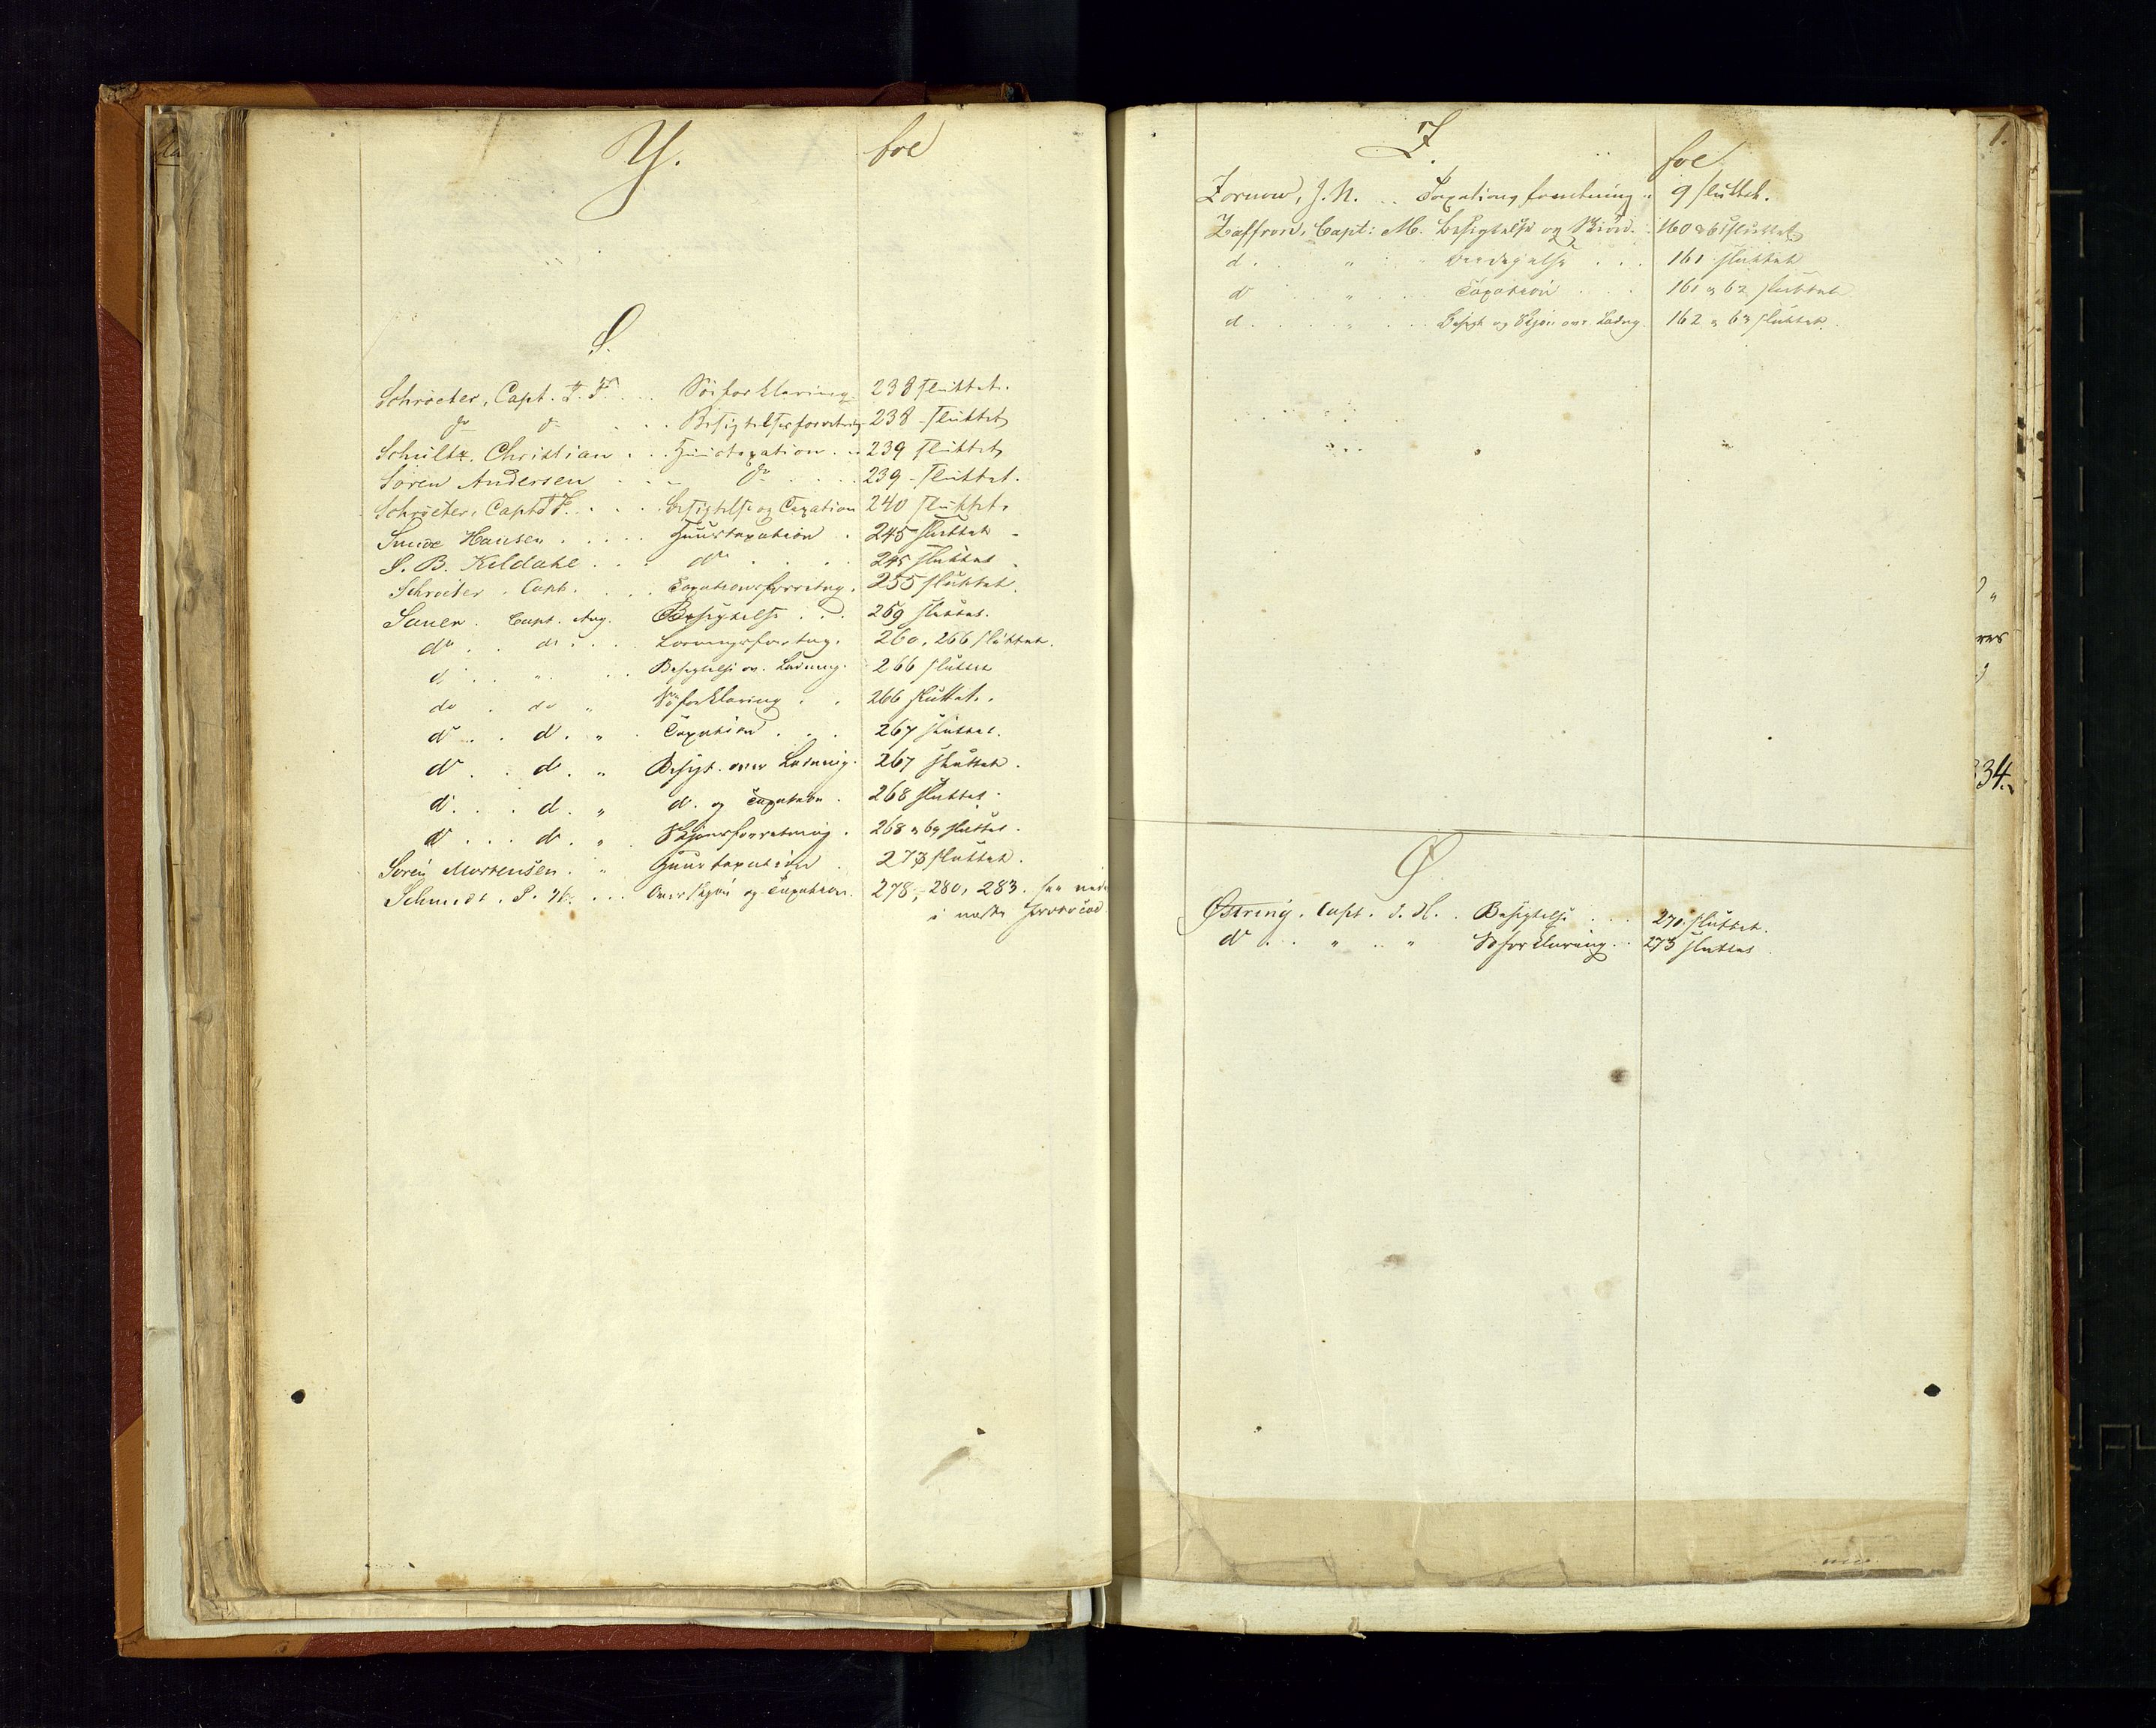 Y. fol
S.
Schrøeter, Capt. I. F. Søeforklaring 238 sluttet.
do do Besigtelsesforretng 238 sluttet
Schultz, Christian Huustaxation 239 sluttet
Søren Andersen do 239 sluttet.
Schrøeter, Capt I F. Besigtelse og Taxation 240 sluttet.
Hansen Huustaxation 245 sluttet
S. B. Kildahl do 245 sluttet
Schrøeter, Capt. Taxationsforretng. 255 sluttet.
Sauer. Capt. Aug. Besigtelse 269 sluttet.
do do 260, 266 sluttet.
d " Besigtelse ov. Ladning. 266 sluttet
do do " Søforklaring 266 sluttet.
do d. " Taxation 267 sluttet.
do d. " Besigt. over Ladning. 267 sluttet.
d. d. " d. og Taxation 268 sluttet.
do do. " Skjønsforretning. 268 & 69 sluttet.
Søren Mortensen. " Huustaxation 273 sluttet.
Schmidt, P. Overskjøn og Taxation. 278, 280, 283. see
i næste Protocol
Z. fol
Zornow, J. N. Taxationsforretning 9 sluttet.
Zaffron, Capt: M. Besigtelse og Skiøn 160 & 61 sluttet
d. " 161 sluttet
do " Taxation 161 & 62 sluttet
d. " Besigt og Skjøn over Ladng. 162 & 63 sluttet.
Ø
Østring, Capt. Besigtelse 270 sluttet.
do " " Søforklaring 273 sluttet.
1.
34.